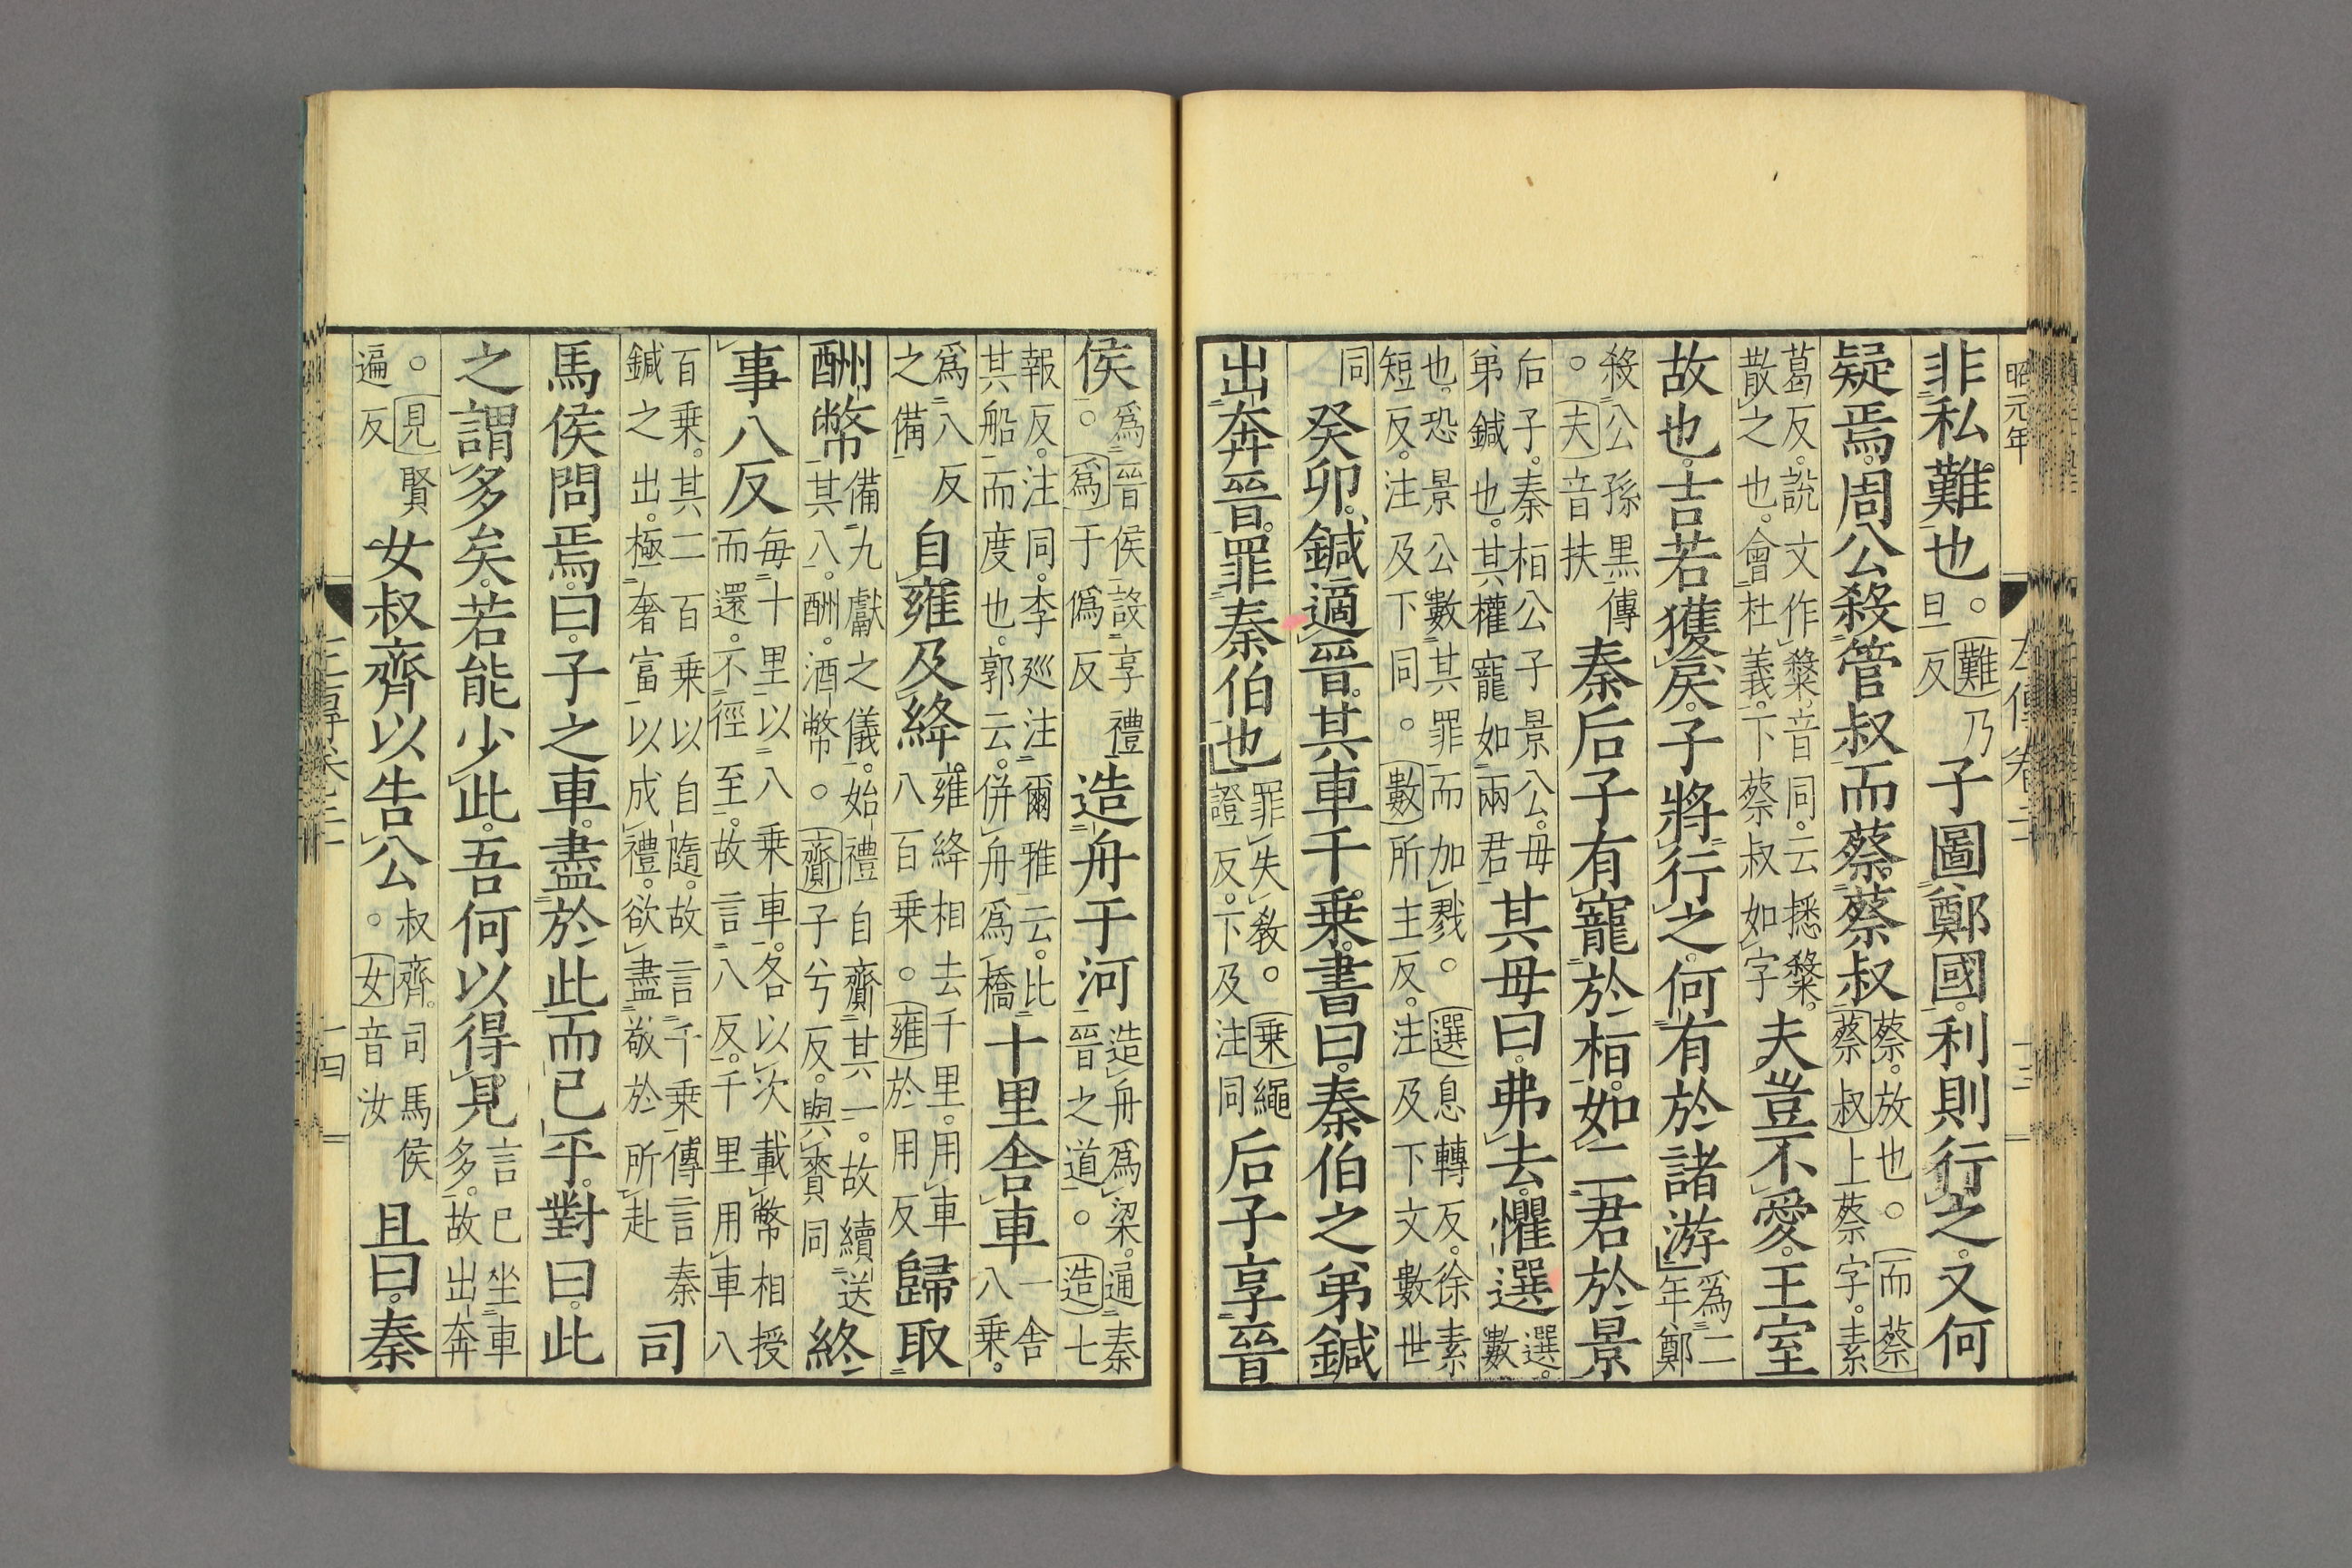 昭元年 左傳卷二 十三
非私難也。○難乃旦反子圖鄭國。利則行之。又何
疑焉。周公殺管叔而蔡蔡叔蔡。放也。○而蔡蔡叔上蔡字。素
葛反。說文作𥻦。音同。云𢶍𥻦。散之也。會杜義。下蔡叔如字夫豈不愛王室
故也。吉若獲戾。子將行之。何有於諸游爲二年鄭
殺公孫黑傳。○夫音扶秦后子有寵於桓。如二君於景
后子。秦桓公子景公。毋弟鍼也。其權寵如兩君其毋曰。弗去懼選選。數
也。恐景公數其罪而加戮。○選息轉反。徐素短反。注及下同。○數所主反。注及下文數世
同癸卯。鍼適晉。其車千乘。書曰。秦伯之弟鍼
出奔晉。罪秦伯也罪失教。○乘繩證反。下及注同后子享晉
侯爲晉侯設享禮○爲于僞反造舟于河造舟爲梁。通秦晉之道。○造七
報反。注同。李巡注爾雅云。比其船而度也。郭云。併舟爲橋十里舍車一舍八乘。
爲八反之備自雍及絳雍絳相去千里。用車八百乘。○雍於用反歸取
酬幣備九獻之儀。始禮自齎其一。故續送其八。酬。酒幣。○齎子兮反。與賷同終
事八反每十里以八乘車。各以次載幣相授而還。不徑至。故言八反。千里用車八
百乘。其二百乘以自隨。故言千乘。傳言秦鍼之出。極奢富以成禮。欲盡敬於所赴司
馬侯問焉。曰。子之車。盡於此而已乎。對曰。此
之謂多矣。若能少此。吾何以得見言已坐車多。故出奔
。○見賢遍反女叔齊以告公叔齊。司馬侯。○女音汝且曰。秦
左傳卷二 十四